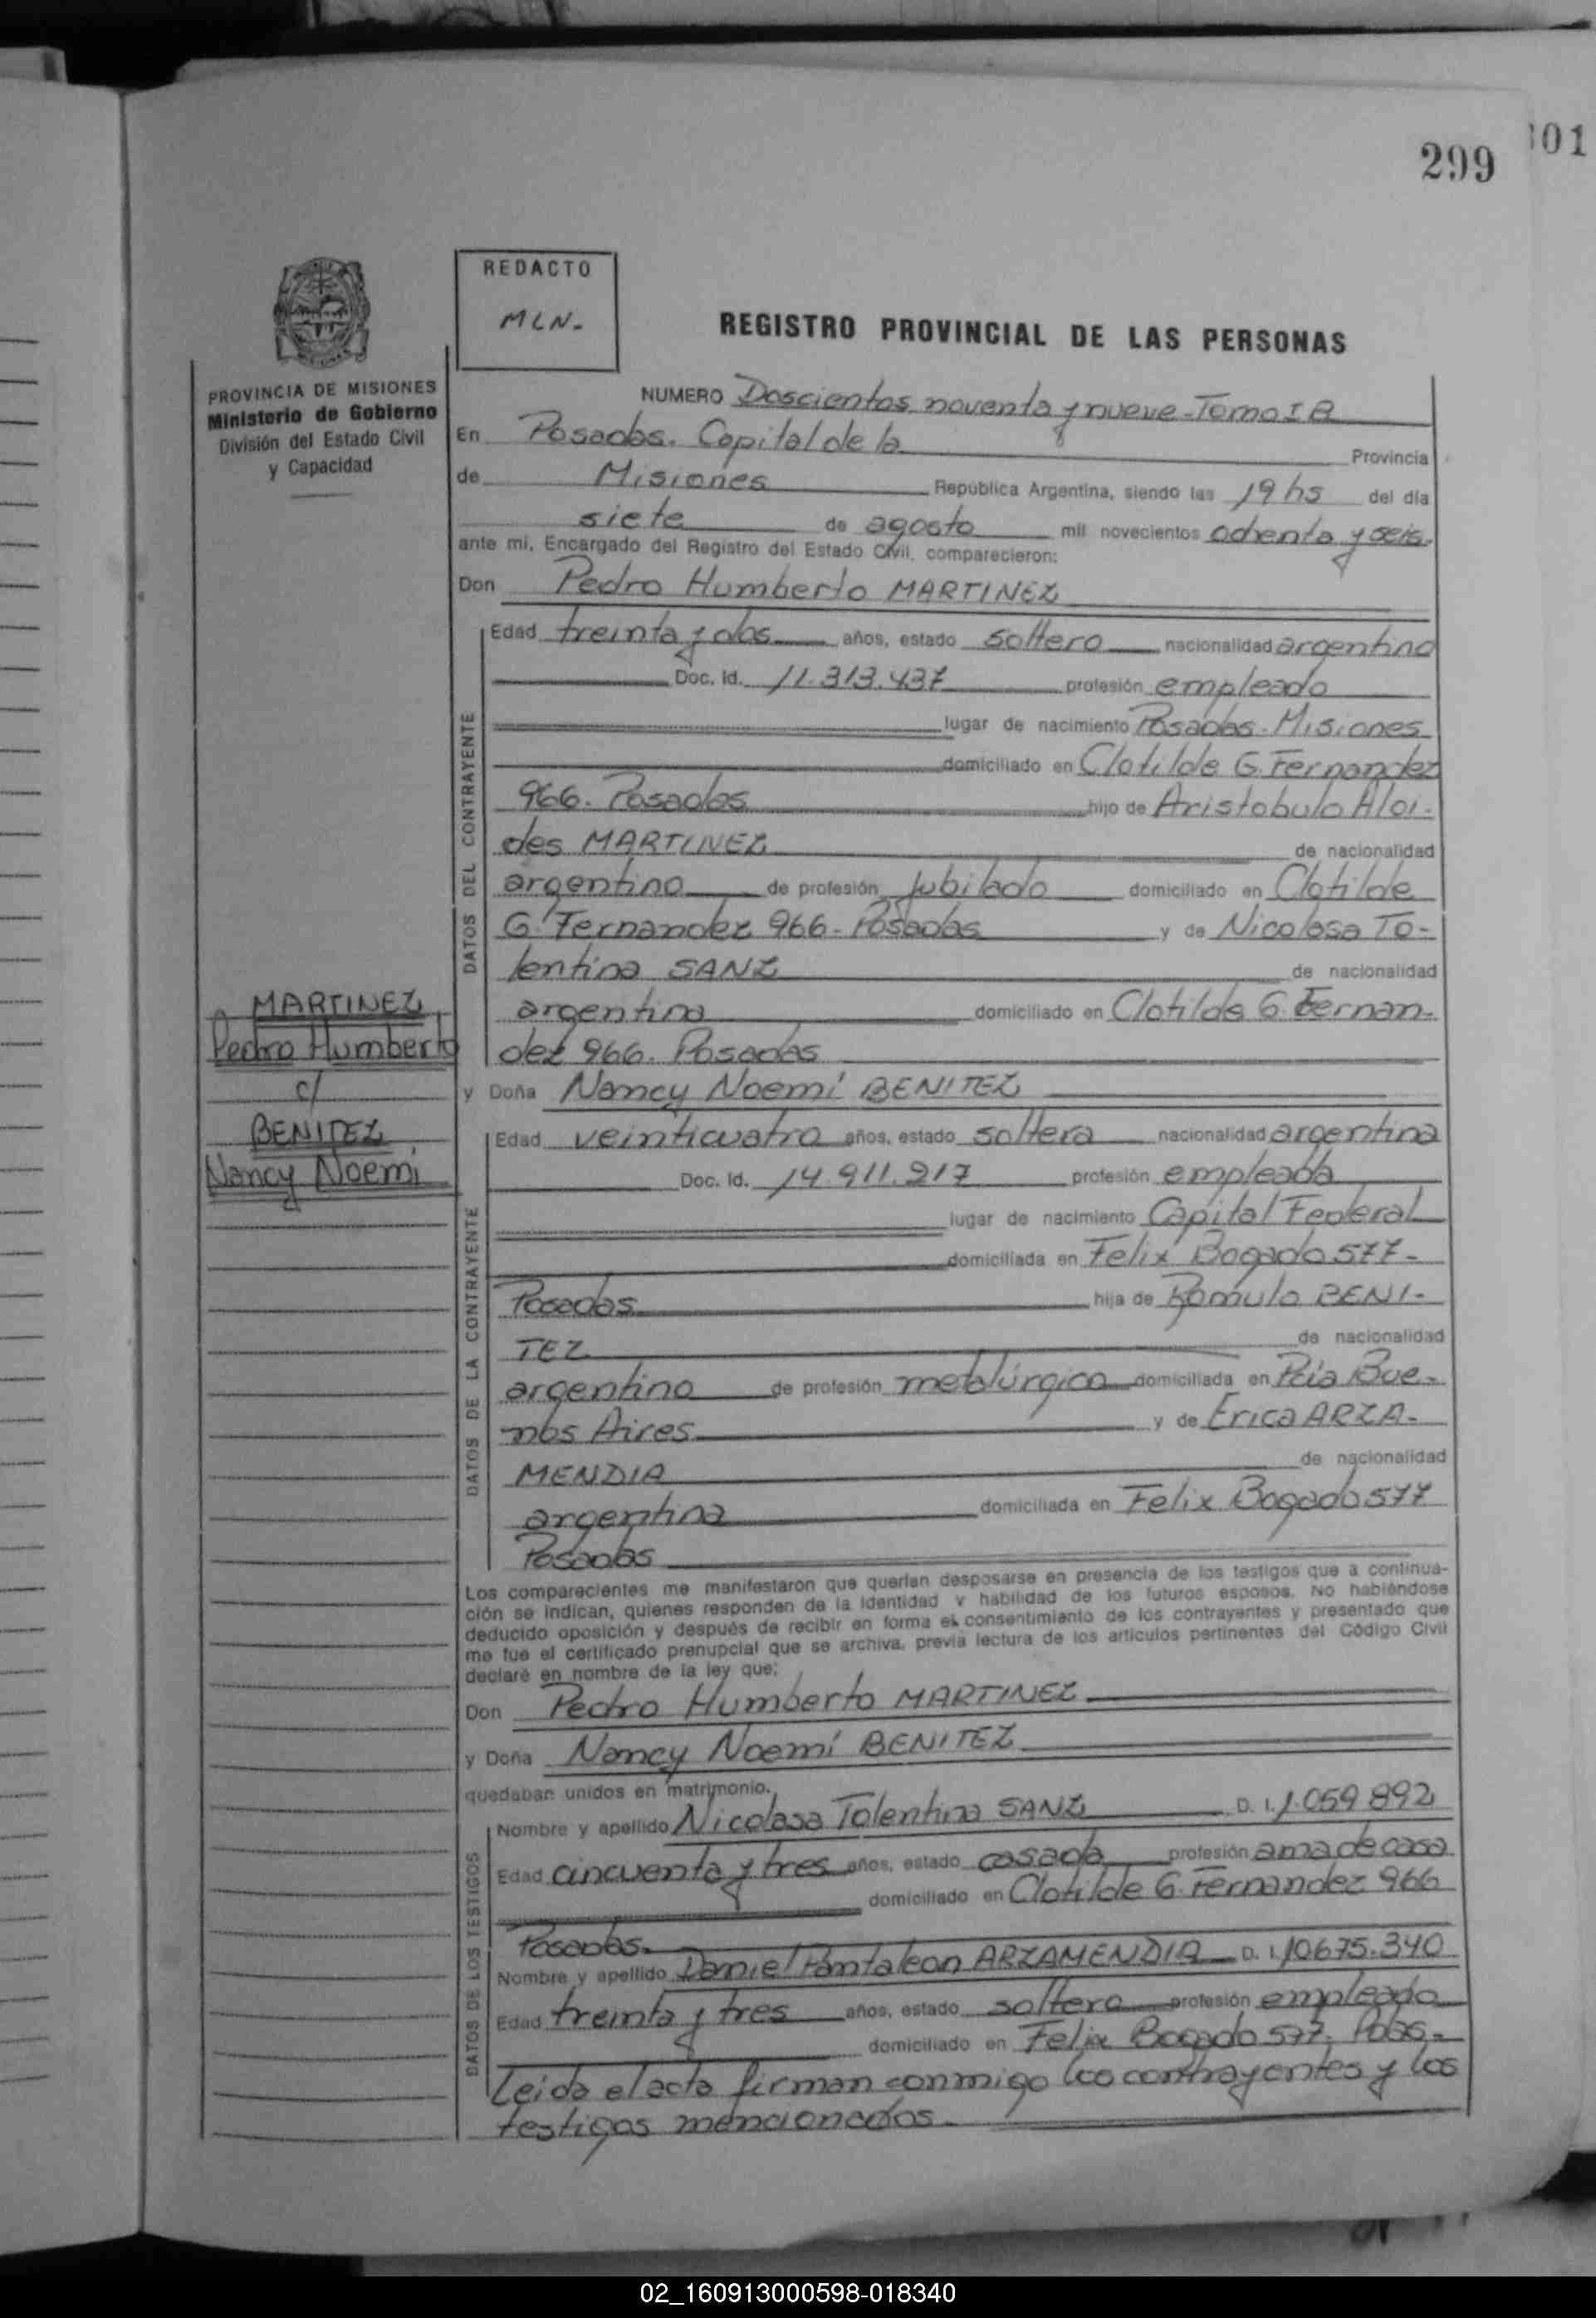 299
101
REDACTO
MLN.
REGISTRO PROVINCIAL DE LAS PERSONAS
PROVINCIA DE MISIONES
Ministerio de Gobierno
División del Estado Civil
y Capacidad
NUMERO Doscientos noventa y nueve - Tomo I A
En Posadas. Capital de la Provincia
de Misiones República Argentina, siendo las 19 hs del día
siete de agosto mil novecientos ochenta y seis.
ante mí, Encargado del Registro del Estado Civil, comparecieron:
Don Pedro Humberto MARTINEZ
DATOS DEL CONTRAYENTE
Edad treinta y dos años, estado soltero nacionalidad argentino
Doc. Id. 11.313.437 profesión empleado
lugar de nacimiento Posadas - Misiones
domiciliado en Clotilde G. Fernandez
966. Posadas hijo de Aristobulo Alci-
des MARTINEZ de nacionalidad
argentino de profesión jubilado domiciliado en Clotilde
G. Fernandez 966 - Posadas y de Nicolasa To-
lentina SANZ de nacionalidad
argentina domiciliado en Clotilde G. Fernan-
dez 966. Posadas
MARTINEZ
Pedro Humberto
c/
BENITEZ
Nancy Noemi
y Doña Nancy Noemí BENITEZ
DATOS DE LA CONTRAYENTE
Edad veinticuatro años, estado soltera nacionalidad argentina
Doc. Id. 14.911.217 profesión empleada
lugar de nacimiento Capital Federal
domiciliada en Felix Bogado 577-
Posadas hija de Rómulo BENI-
TEZ de nacionalidad
argentino de profesión metalúrgico domiciliada en Pcia Bue-
nos Aires y de Erica ARZA-
MENDIA de nacionalidad
argentina domiciliada en Felix Bogado 577
Posadas
Los comparecientes me manifestaron que querían desposarse en presencia de los testigos que a continua-
ción se indican, quienes responden de la identidad y habilidad de los futuros esposos. No habiéndose
deducido oposición y después de recibir en forma el consentimiento de los contrayentes y presentado que
me fue el certificado prenupcial que se archiva, previa lectura de los artículos pertinentes del Código Civil
declaré en nombre de la ley que:
Don Pedro Humberto MARTINEZ
y Doña Nancy Noemí BENITEZ
quedaban unidos en matrimonio.
DATOS DE LOS TESTIGOS
Nombre y apellido Nicolasa Tolentina SANZ D. I. 1.059.892
Edad cincuenta y tres años, estado casada profesión ama de casa
domiciliado en Clotilde G. Fernandez 966
Posadas.
Nombre y apellido Daniel Pantaleon ARZAMENDIA D. I. 10675.340
Edad treinta y tres años, estado soltero profesión empleado
domiciliado en Felix Bogado 577. Pdas.-
Leida el acta firman conmigo los contrayentes y los
testigos mencionados.
02_160913000598-018340